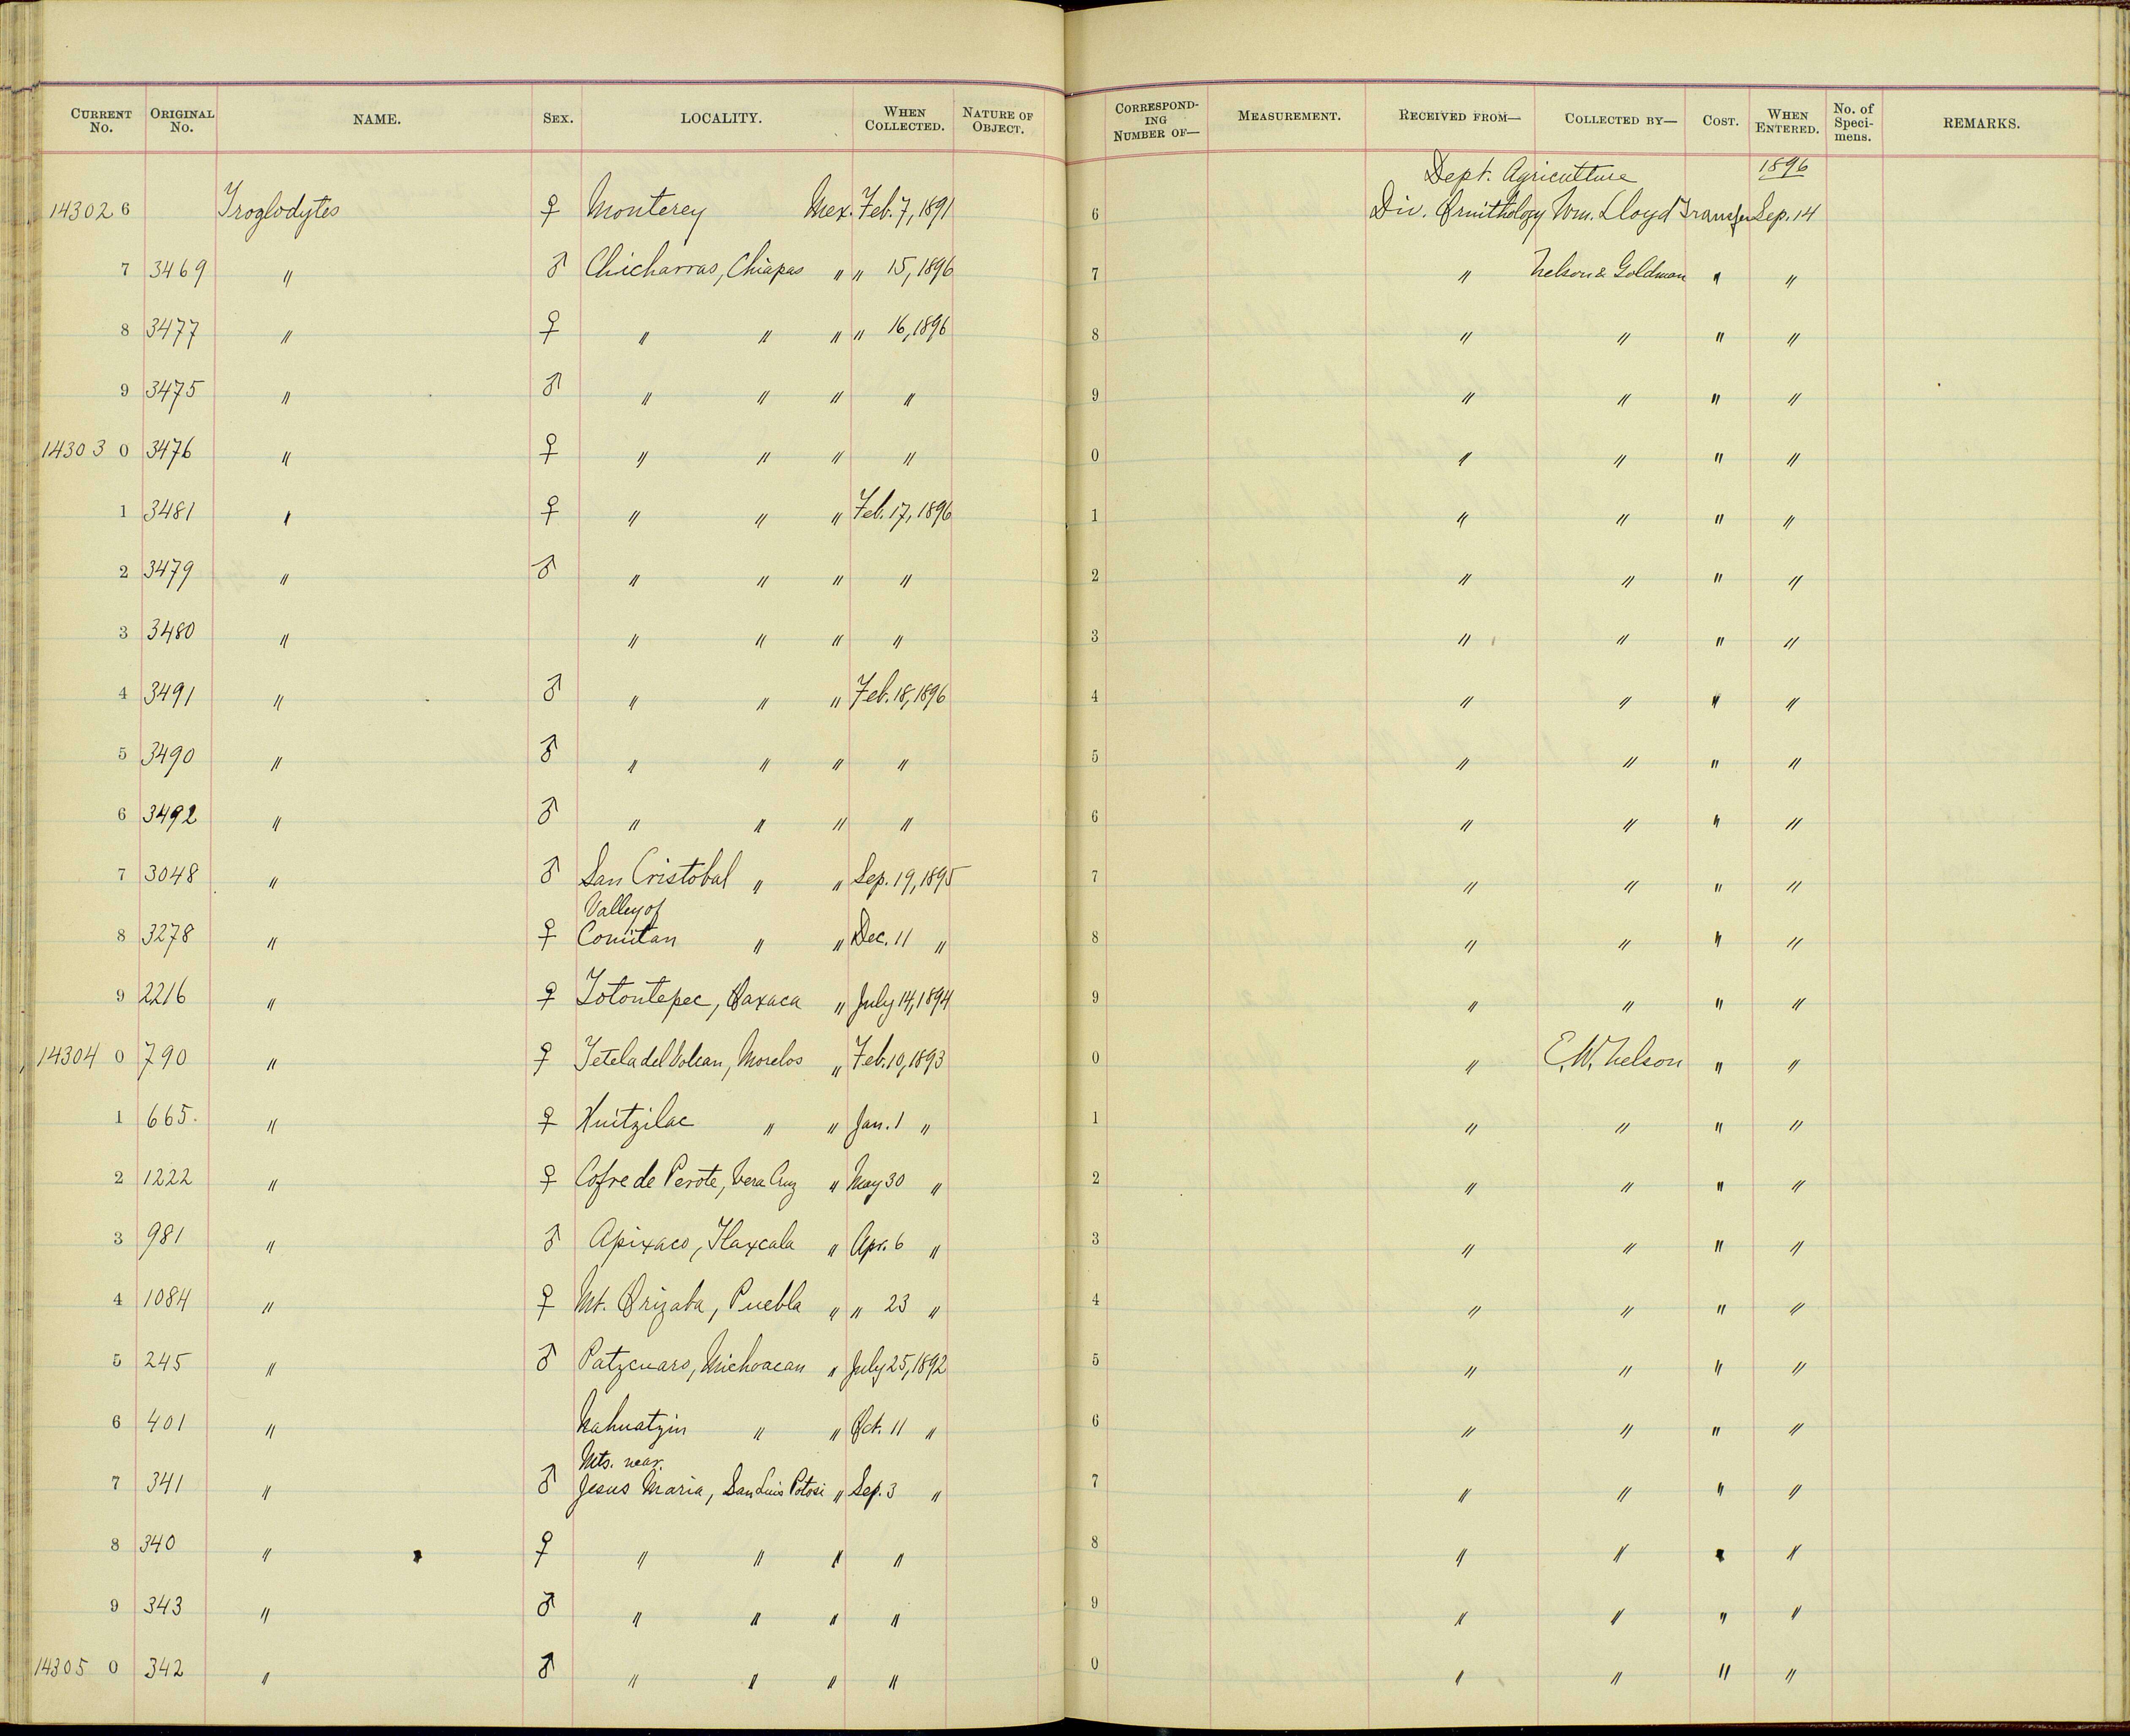 CURRENT No. ORIGINAL No. NAME. SEX. LOCALITY. WHEN COLLECTED. NATURE OF OBJECT. CORRESPONDING NUMBER OF— MEASUREMENT. RECEIVED FROM— COLLECTED BY— COST. WHEN ENTERED. No. of Specimens. REMARKS.
Dept. Agriculture 1896
143026 Troglodytes ♀ Monterey Mex. Feb. 7, 1891 6 Div. Ornithology Wm. Lloyd Transfer Sep. 14
7 3469 " ♂ Chicharras, Chiapas " " 15, 1896 7 " Nelson & Goldman " "
8 3477 " ♀ " " " " 16, 1896 8 " " " "
9 3475 " ♂ " " " " 9 " " " "
14303 0 3476 " ♀ " " " " 0 " " " "
1 3481 " ♀ " " " Feb. 17, 1896 1 " " " "
2 3479 " ♂ " " " " 2 " " " "
3 3480 " " " " " 3 " " " "
4 3491 " ♂ " " " Feb. 18, 1896 4 " " " "
5 3490 " ♂ " " " " 5 " " " "
6 3492 " ♂ " " " " 6 " " " "
7 3048 " ♂ San Cristobal " " Sep. 19, 1895 7 " " " "
Valley of
8 3278 " ♀ Comitan " " Dec. 11 " 8 " " " "
9 2216 " ♀ Totontepec, Oaxaca " July 14, 1894 9 " " " "
14304 0 790 " ♀ Tetela del Volcan, Morelos " Feb. 10, 1893 0 " E. W. Nelson " "
1 665. " ♀ Huitzilac " " Jan. 1 " 1 " " " "
2 1222 " ♀ Cofre de Perote, Vera Cruz " May 30 " 2 " " " "
3 981 " ♂ Apixaco, Tlaxcala " Apr. 6 " 3 " " " "
4 1084 " ♀ Mt. Orizaba, Puebla " " 23 " 4 " " " "
5 245 " ♂ Patzcuaro, Michoacan " July 25, 1892 5 " " " "
6 401 " Nahuatzin " " Oct. 11 " 6 " " " "
Mts. near
7 341 " ♂ Jesus Maria, San Luis Potosi " Sep. 3 " 7 " " " "
8 340 " ♀ " " " " 8 " " " "
9 343 " ♂ " " " " 9 " " " "
14305 0 342 " ♂ " " " " 0 " " " "